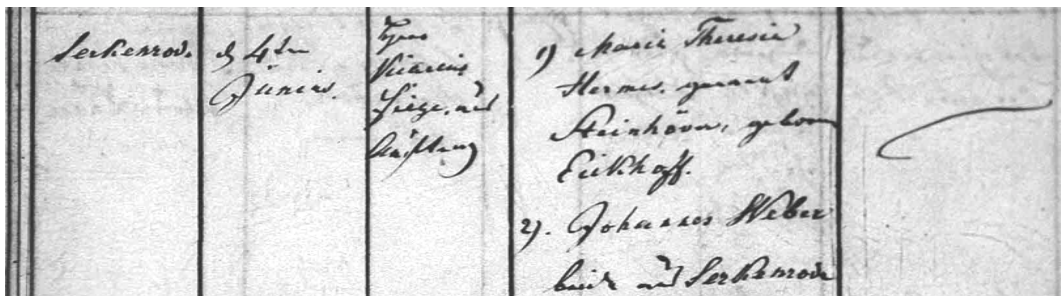 Serkenrode
d 4ten
Junius.
Vicarius
aus
1) Maria Theresia
Hermes, genannt
Steinhöver, geborn
Eickhoff.
2). Johannes Weber
beide aus Serkenrode